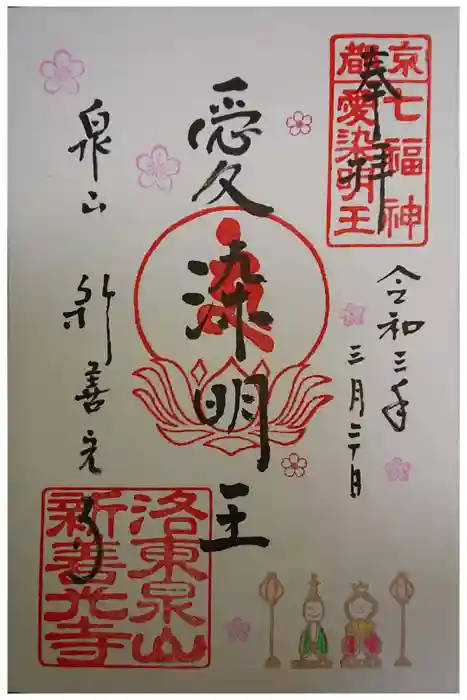 奉拝
京都七福神
愛染明王
令和三年
三月二十日
愛染明王
泉山
新善光寺
洛東泉山
新善光寺